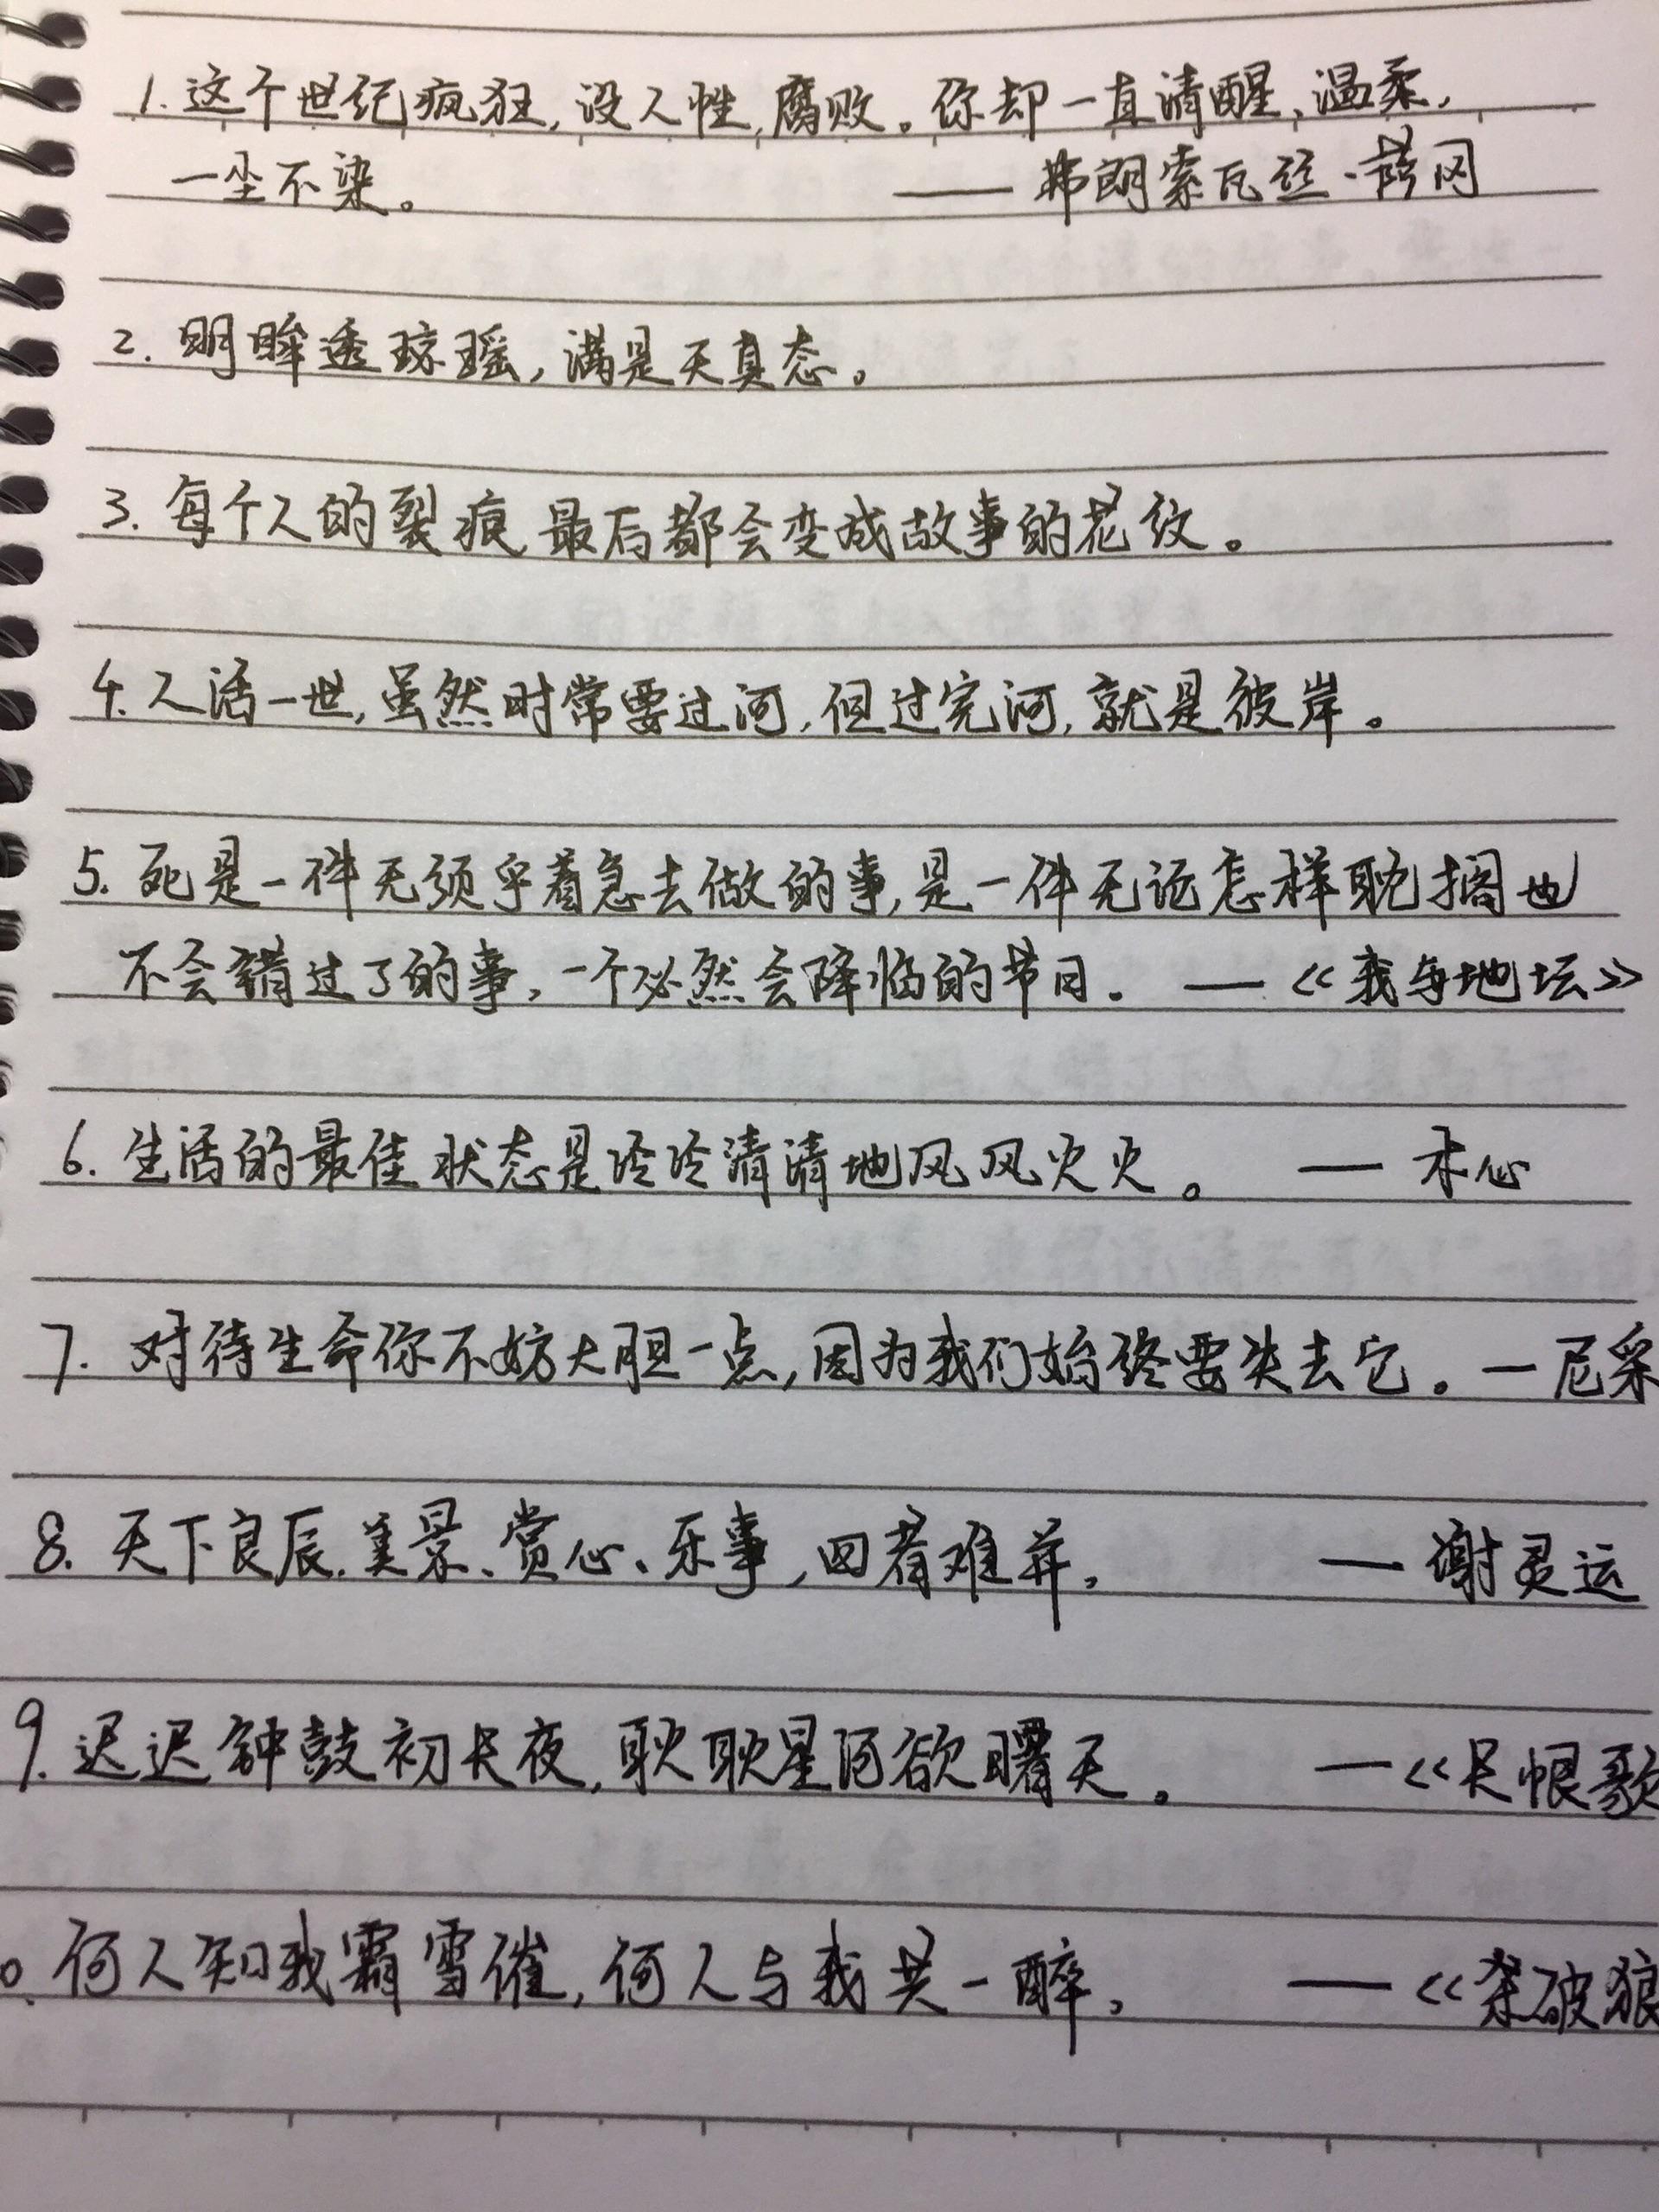 1. 这个世纪疯狂,没人性,腐败。你却一直清醒、温柔,
一尘不染。 —— 弗朗索瓦丝·萨冈
2. 明眸透琼瑶,满是天真态。
3. 每个人的裂痕 最后都会变成故事的花纹。
4. 人活一世,虽然时常要过河,但过完河,就是彼岸。
5. 死是一件无须乎着急去做的事,是一件无论怎样耽搁也
不会错过了的事,一个必然会降临的节日. —— 《我与地坛》
6. 生活的最佳状态是冷冷清清地风风火火。 —— 木心
7. 对待生命你不妨大胆一点,因为我们始终要失去它。—尼采
8. 天下良辰.美景、赏心、乐事,四者难并. —— 谢灵运
9. 迟迟钟鼓初长夜,耿耿星河欲曙天。 —《长恨歌
0. 何人知我霜雪催,何人与我共一醉. —— 《杀破狼